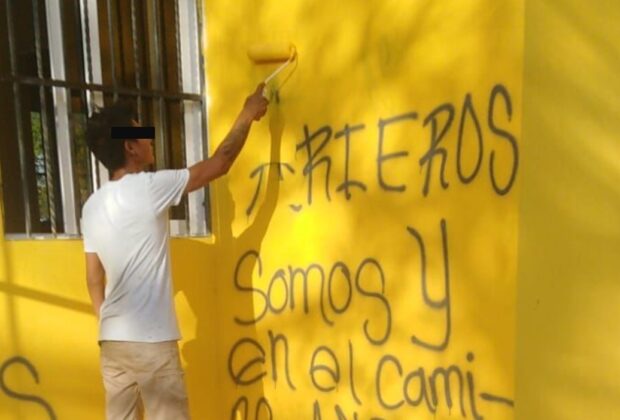 ARRIEROS
Somos y
en el cami-